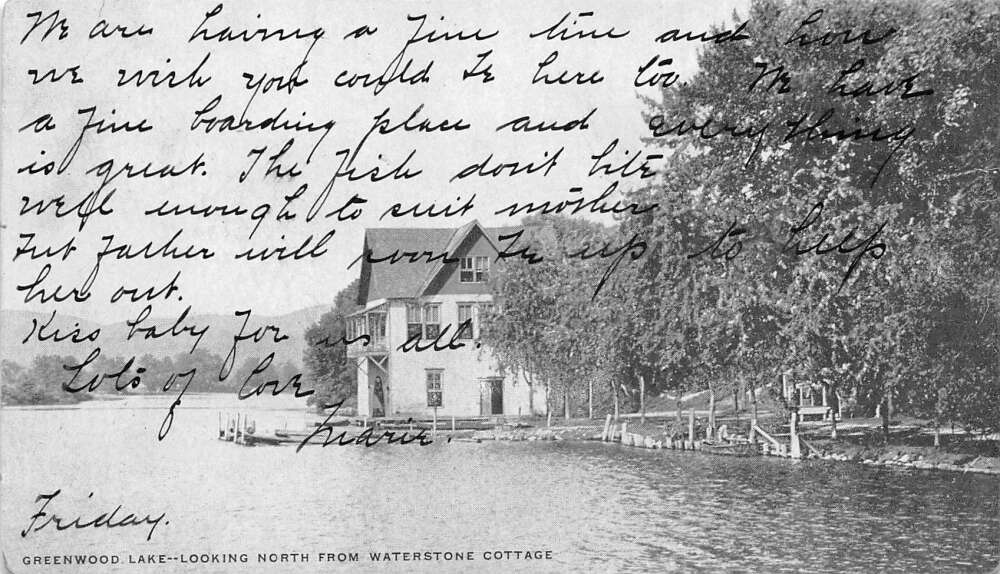 We are having a fine time and how
we wish you could be here too. We have
a fine boarding place and everything
is great. The fish don't bite
well enough to suit mother
but father will soon be up to help
her out.
Kiss baby for us all.
Lots of love
Marie.
Friday.
GREENWOOD LAKE--LOOKING NORTH FROM WATERSTONE COTTAGE